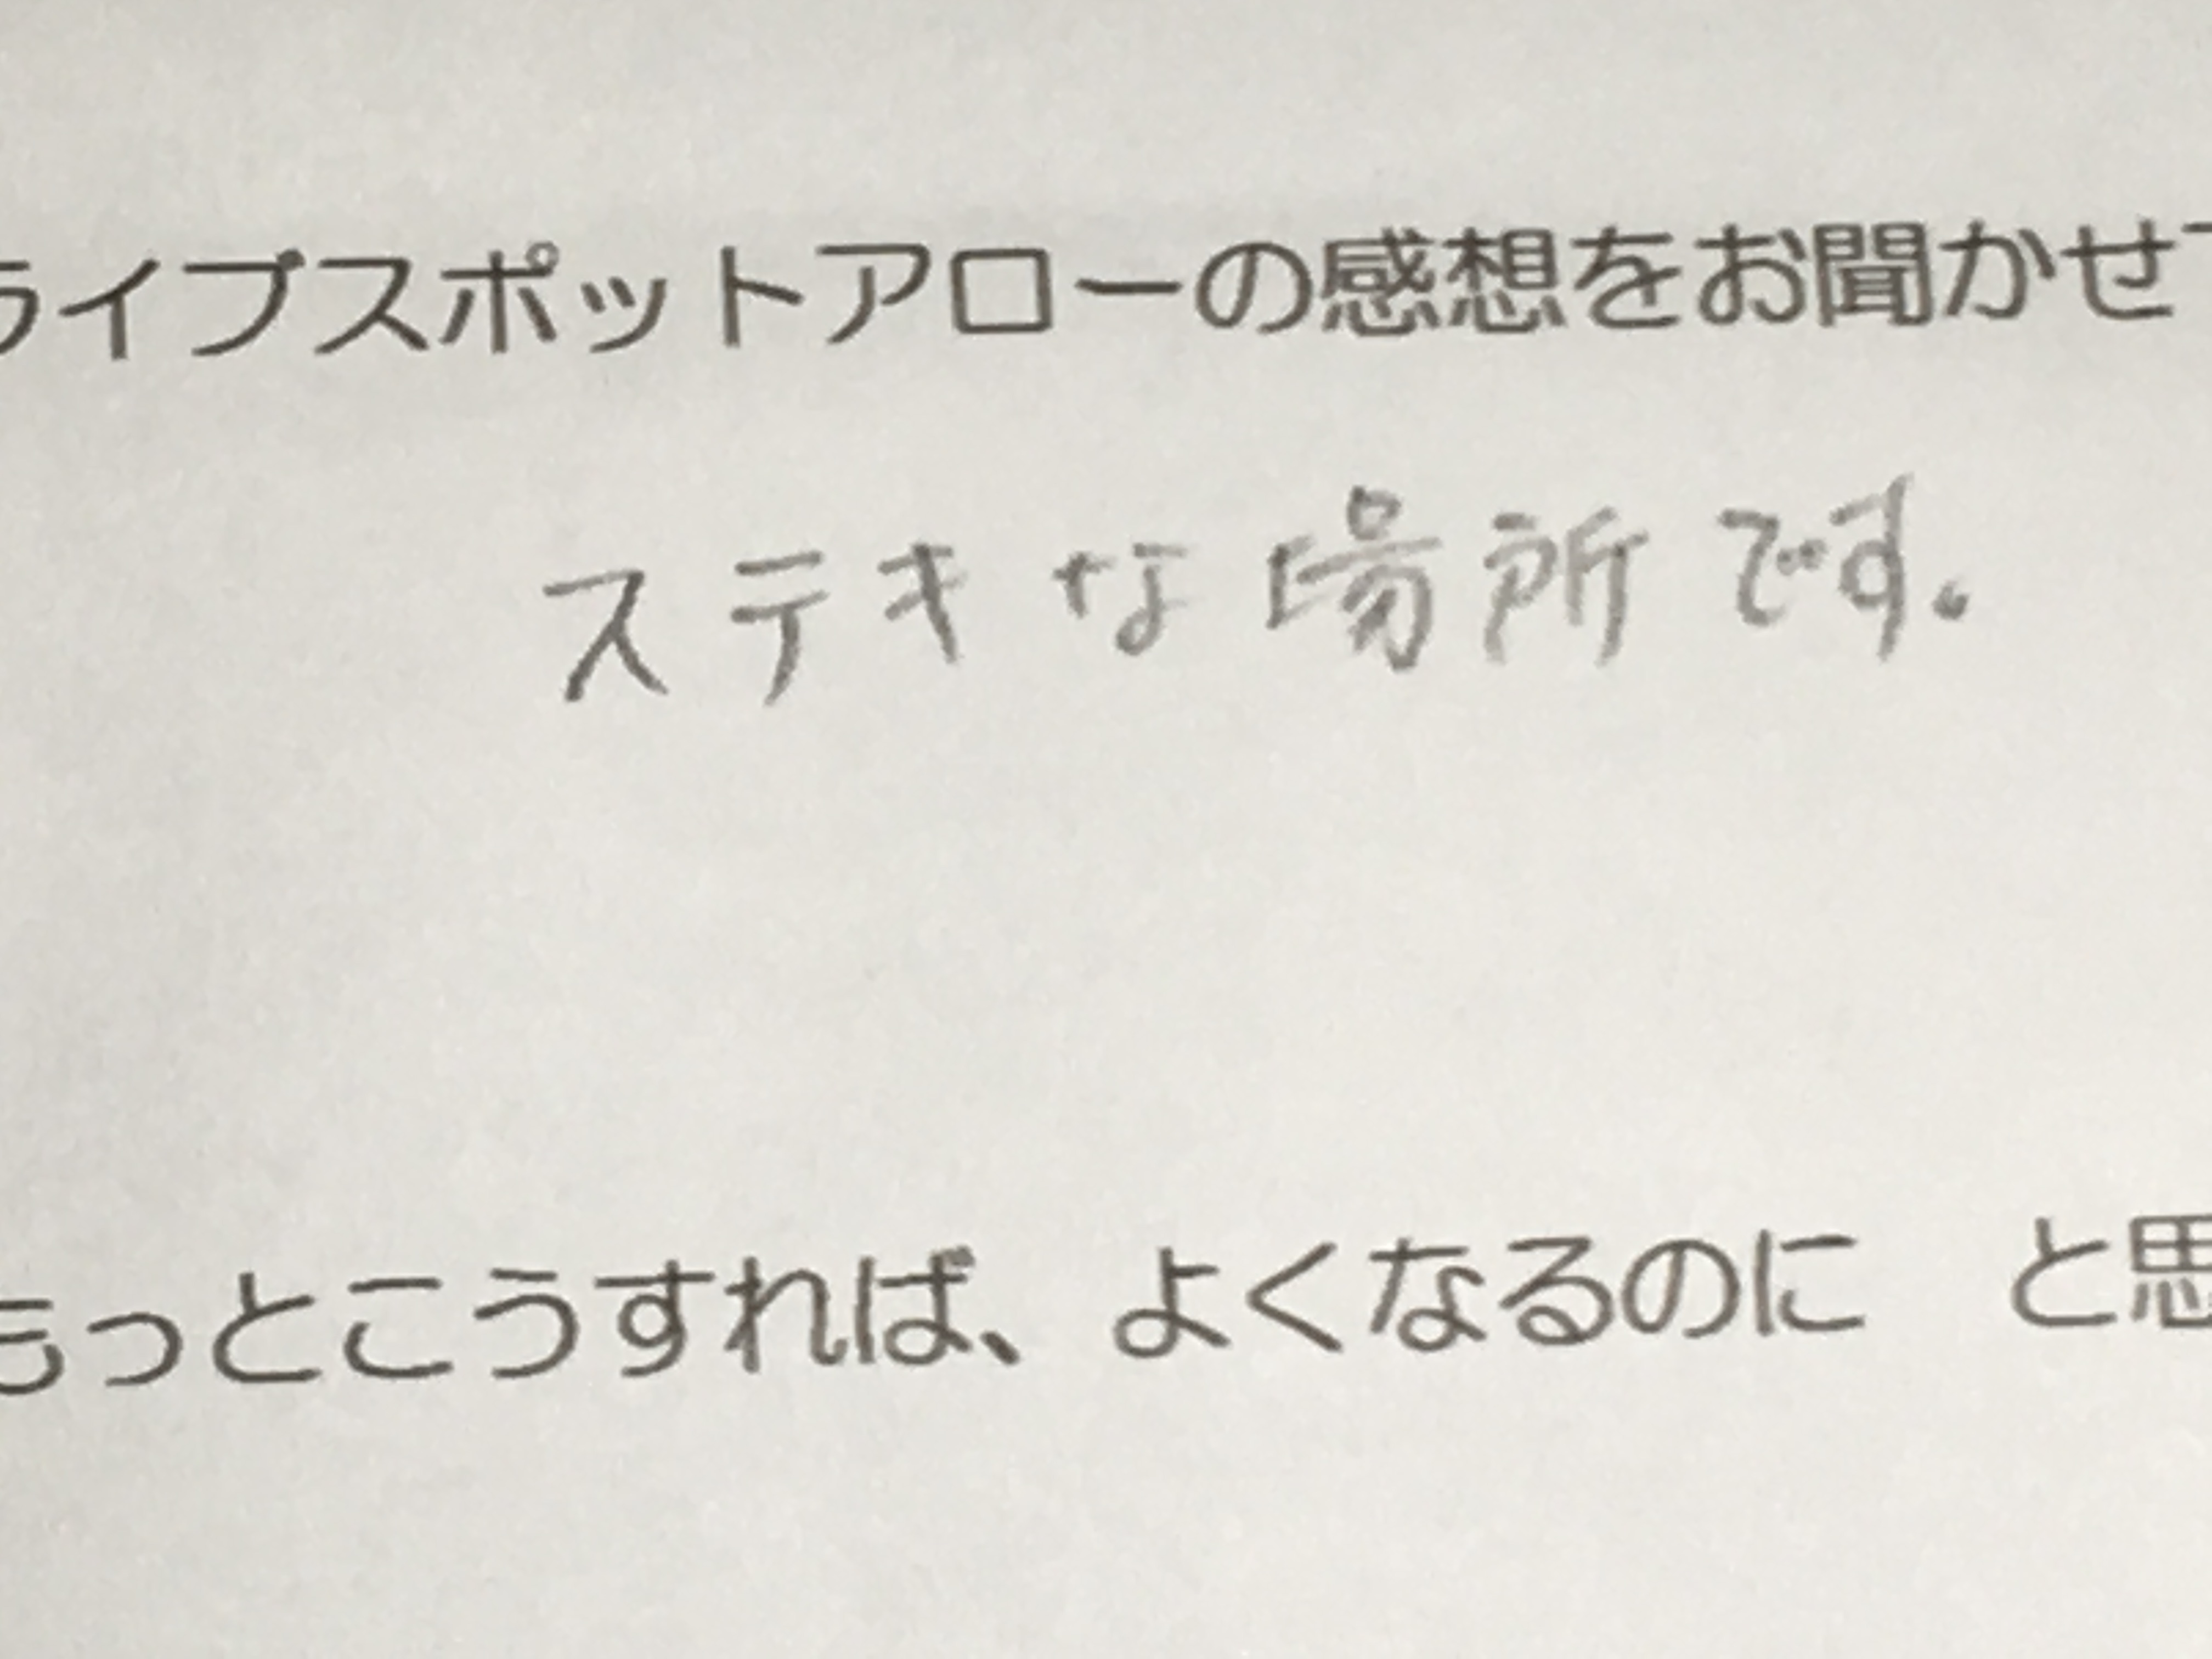 ライブスポットアローの感想をお聞かせ
ステキな場所です.
もっとこうすれば、よくなるのに　と思